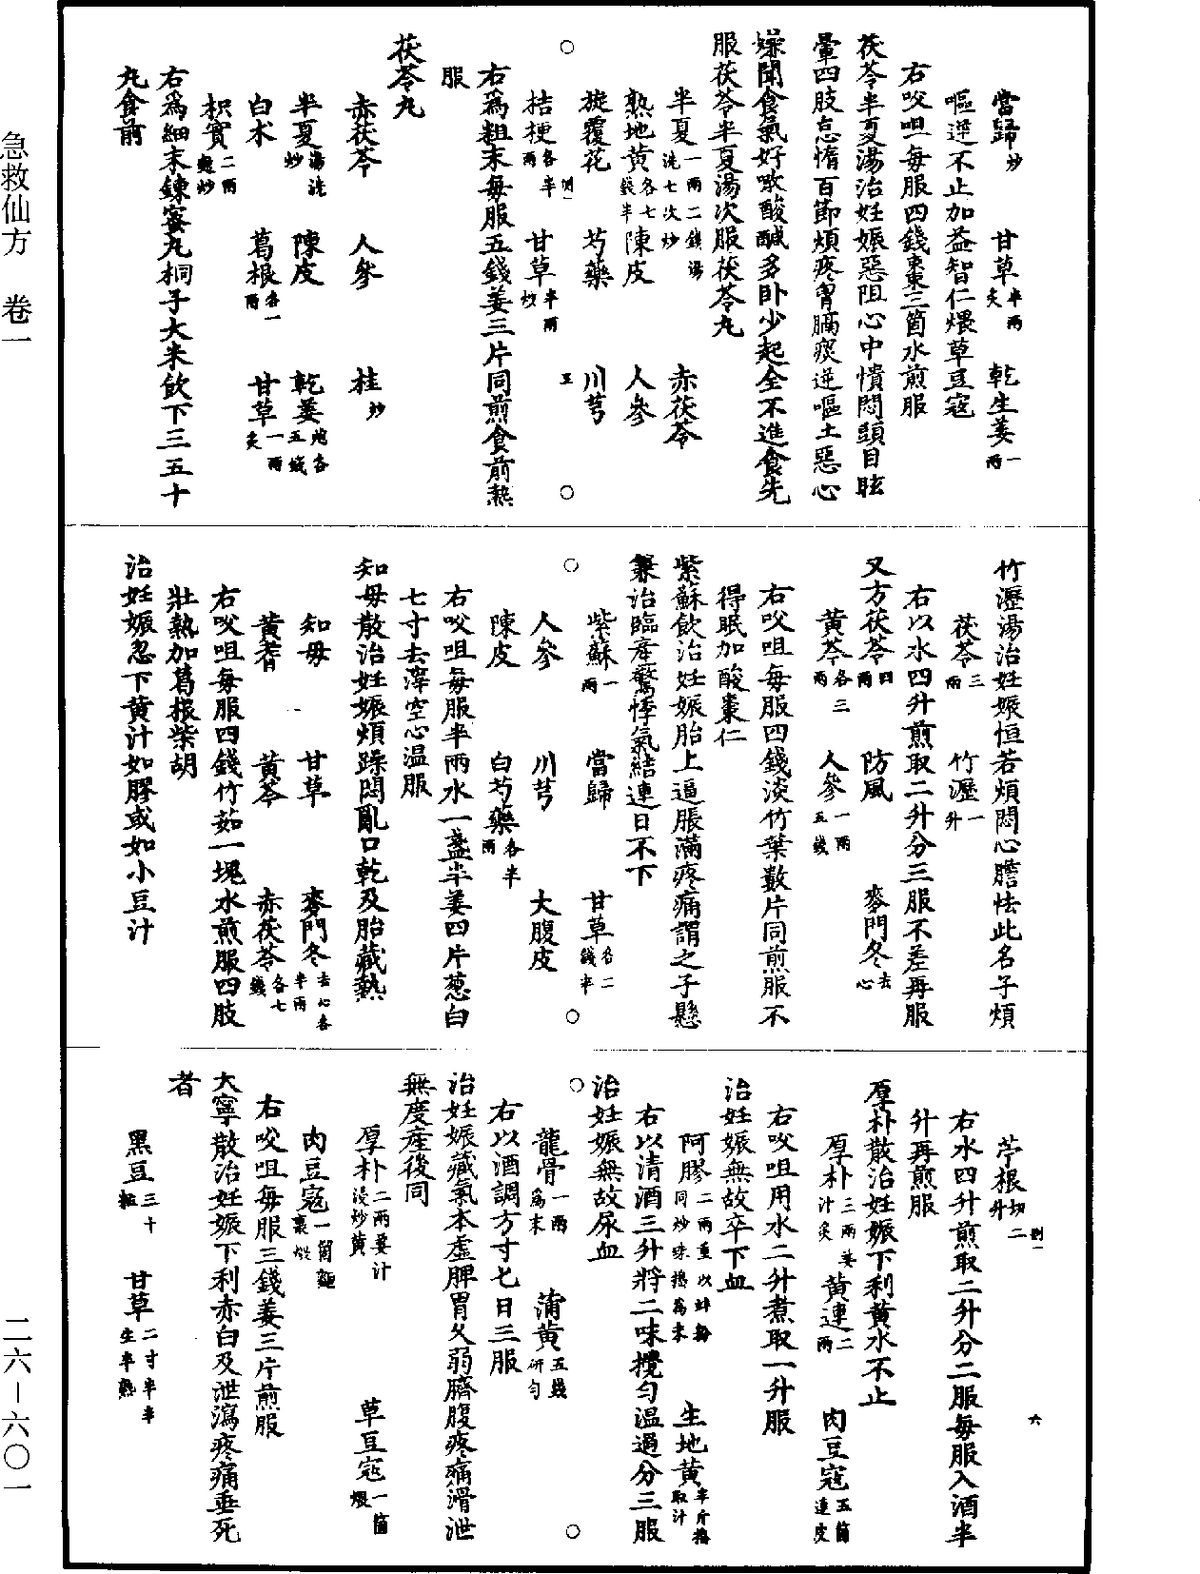 急救仙方 卷一
二六－六〇一
當歸炒 甘草半兩炙 乾生姜一兩
嘔逆不止加益智仁煨草豆寇
右㕮咀每服四錢棗三箇水煎服
茯苓半夏湯治妊娠惡阻心中憒悶頭目眩
暈四肢怠惰百節煩疼胷膈痰逆嘔土惡心
嫌聞食氣好噉酸醎多卧少起全不進食先
服茯苓半夏湯次服茯苓丸
半夏一兩二錢湯洗七次炒 赤茯苓
熟地黄各七錢半 陳皮 人參
旋覆花 芍藥 川芎
桔梗各半兩 甘草半兩炒
右爲粗末每服五錢姜三片同煎食前熱
服
茯苓丸
赤茯苓 人參 桂炒
半夏湯洗炒 陳皮 乾姜炮各五錢
白术 葛根各一兩 甘草一兩炙
枳實二兩麩炒
右爲細末鍊蜜丸桐子大米飲下三五十
丸食前
竹瀝湯治妊娠恒若煩悶心膽怯此名子煩
茯苓三兩 竹瀝一升
右以水四升煎取二升分三服不差再服
又方茯苓四兩 防風 麥門冬去心
黄芩各三兩 人參一兩五錢
右㕮咀每服四錢淡竹葉數片同煎服不
得眠加酸棗仁
紫蘇飲治妊娠胎上逼脹滿疼痛謂之子懸
兼治臨產驚悸氣結連日不下
紫蘇一兩 當歸 甘草各二錢半
人參 川芎 大腹皮
陳皮 白芍藥各半兩
右㕮咀每服半兩水一盞半姜四片葱白
七寸去滓空心温服
知母散治妊娠煩躁悶亂口乾及胎藏熱
知母 甘草 麥門冬去心各半兩
黄耆 黄芩 赤茯苓各七錢
右㕮咀每服四錢竹茹一塊水煎服四肢
壯熱加葛根柴胡
治妊娠忍下黄汁如膠或如小豆汁
苧根切二升
右水四升煎取二升分二服每服入酒半
升再煎服
厚朴散治妊娠下利黄水不止
厚朴三兩姜汁炙 黄連二兩 肉豆寇五箇連皮
右㕮咀用水二升煮取一升服
治妊娠無故卒下血
阿膠二兩重以蚌粉同炒珠搗爲末 生地黄半斤搗取汁
右以清酒三升將二味攪勻温過分三服
治妊娠無故尿血
龍骨一兩爲末 蒲黄五錢研勻
右以酒調方寸匕日三服
治妊娠藏氣本虛脾胃久弱臍腹疼痛滑泄
無度產後同
厚朴二兩姜汁浸炒黄 草豆寇一箇煨
肉豆寇一箇麵裹煨
右㕮咀每服三錢姜三片煎服
大寧散治妊娠下利赤白及泄瀉疼痛垂死
者
黑豆三十粒 甘草二寸半半生半熟